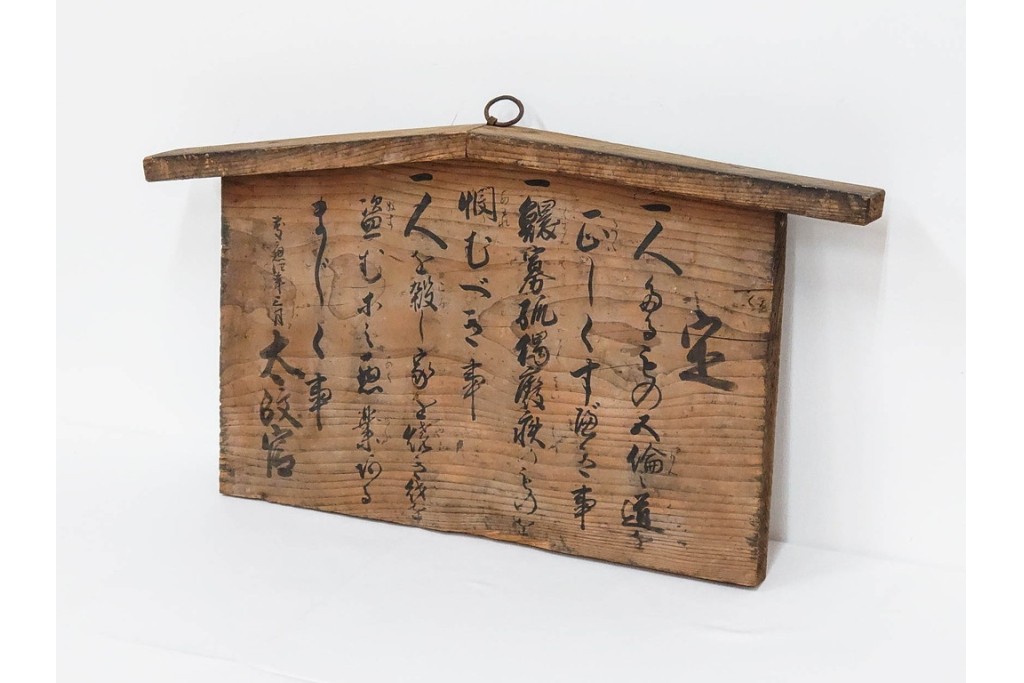 定
一人たるもの五倫之道を
正しくすべき事
一鰥寡孤獨廢疾のものを
憫むべき事
一人を殺し家を焼き財を
盗む等之惡業ある
まじく事
慶應四年三月
太政官